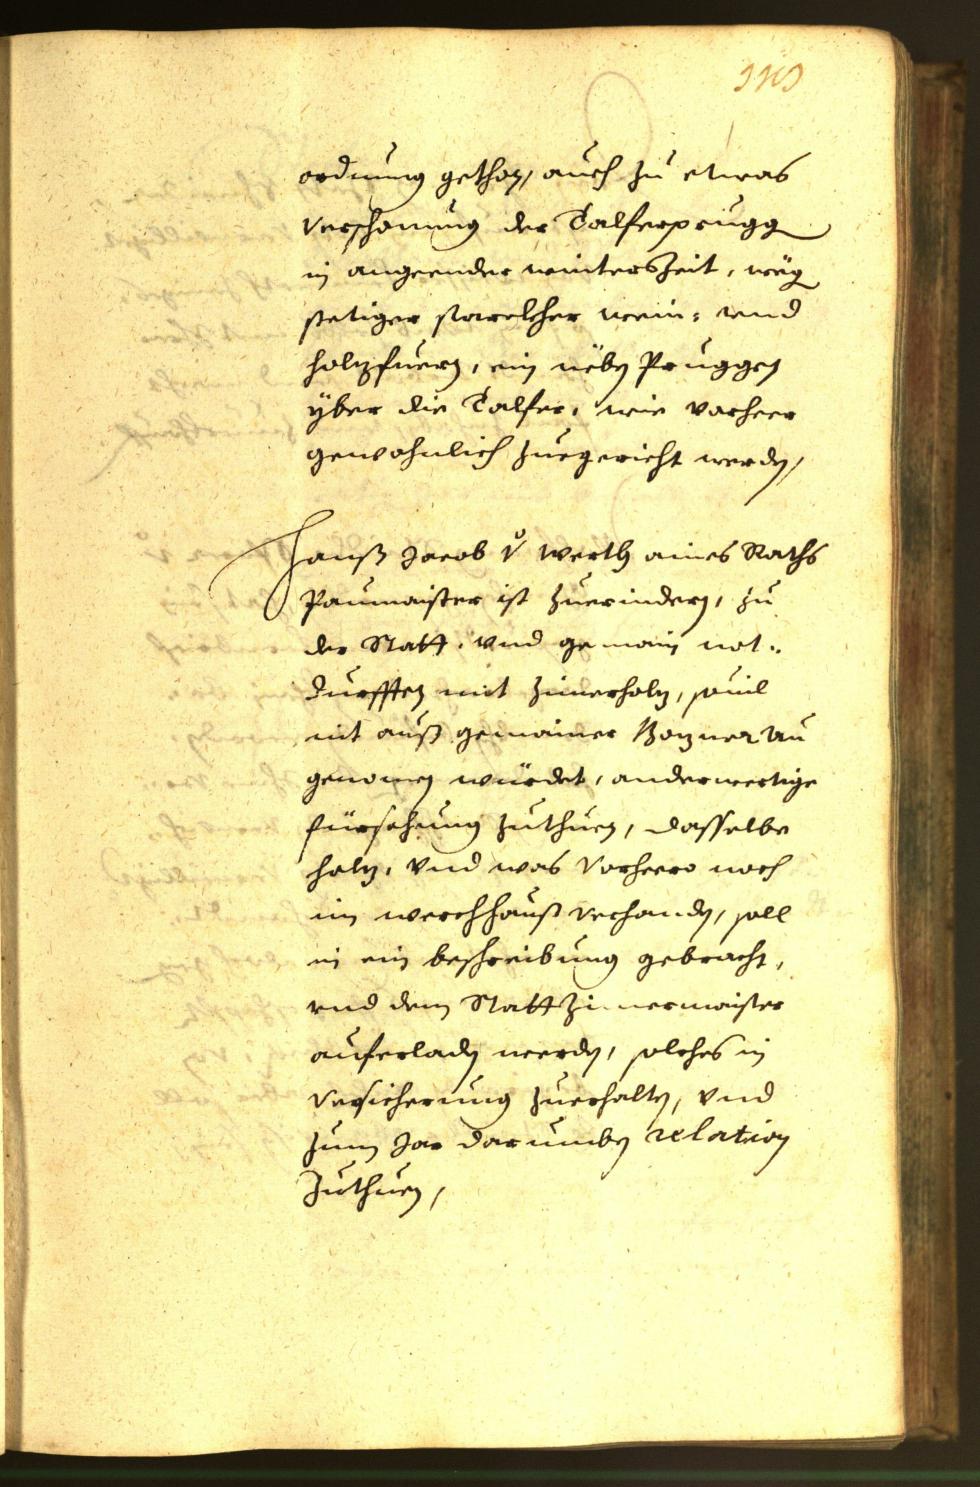 ordnung gethon, auch zu etwas
verschonung der Talferprugg
in angeender winterszeit, weg
stetiger starckher wein: vnd
holzfuern, ein neben Pruggen
yber die Talfer, wie vorheer
gewohnlich zuegericht werden,
Hanß Jacob v Werth aines Raths
Paumaister ist zuerindern, zu
der Statt, vnd gemain not:
durfften mit zimerholz, souil
nit auß gemainer Bozner Au
genomen würdet, anderwertige
fürsehung zuthuen, dasselbe
holz, vnd was vorheero noch
im werchhauß verhanden, soll
in ein beschreibung gebracht,
vnd dem Statt Zimermaister
auferladen werden, solches in
versicherung zuerhalten, vnd
zum Jar darumben relation
zuthuen,